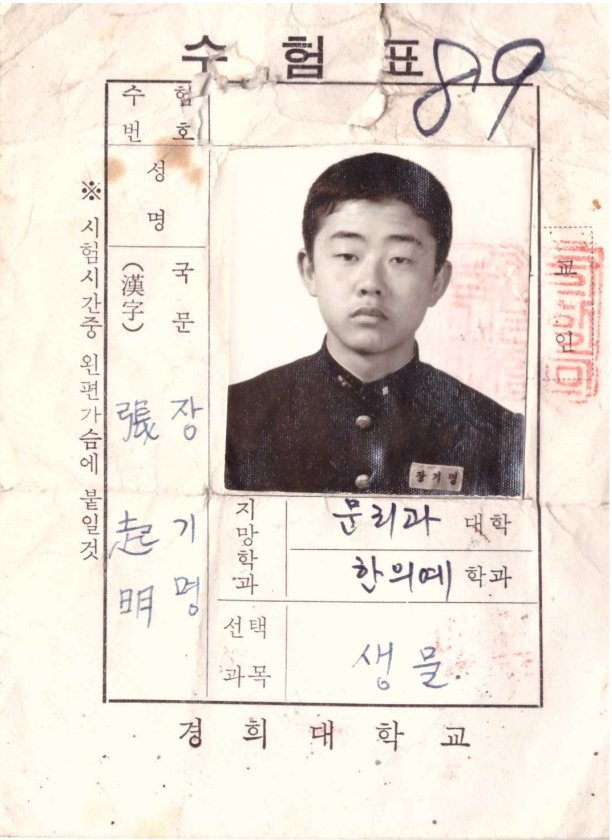 수험표
89
수험
번호
성명
국문
(漢字)
장기명
張起明
장기명
교인
지망학과
문리과 대학
한의예 학과
선택
과목
생물
※ 시험시간중 왼편가슴에 붙일것
경희대학교